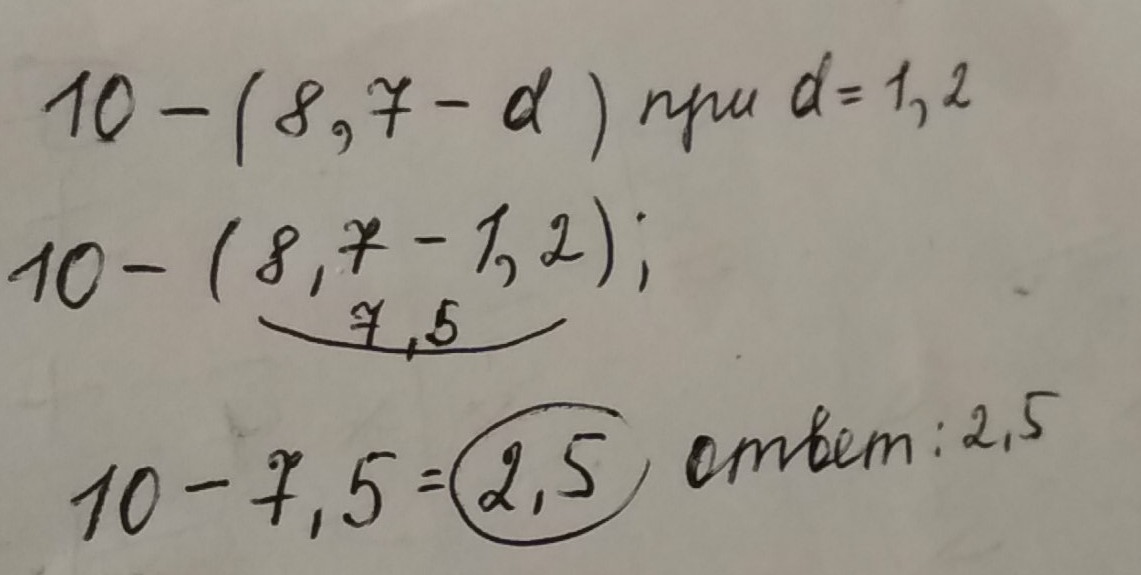 10 - (8,7 - d) при d = 1,2
10 - (8,7 - 1,2);
7,5
10 - 7,5 = 2,5 ответ: 2,5